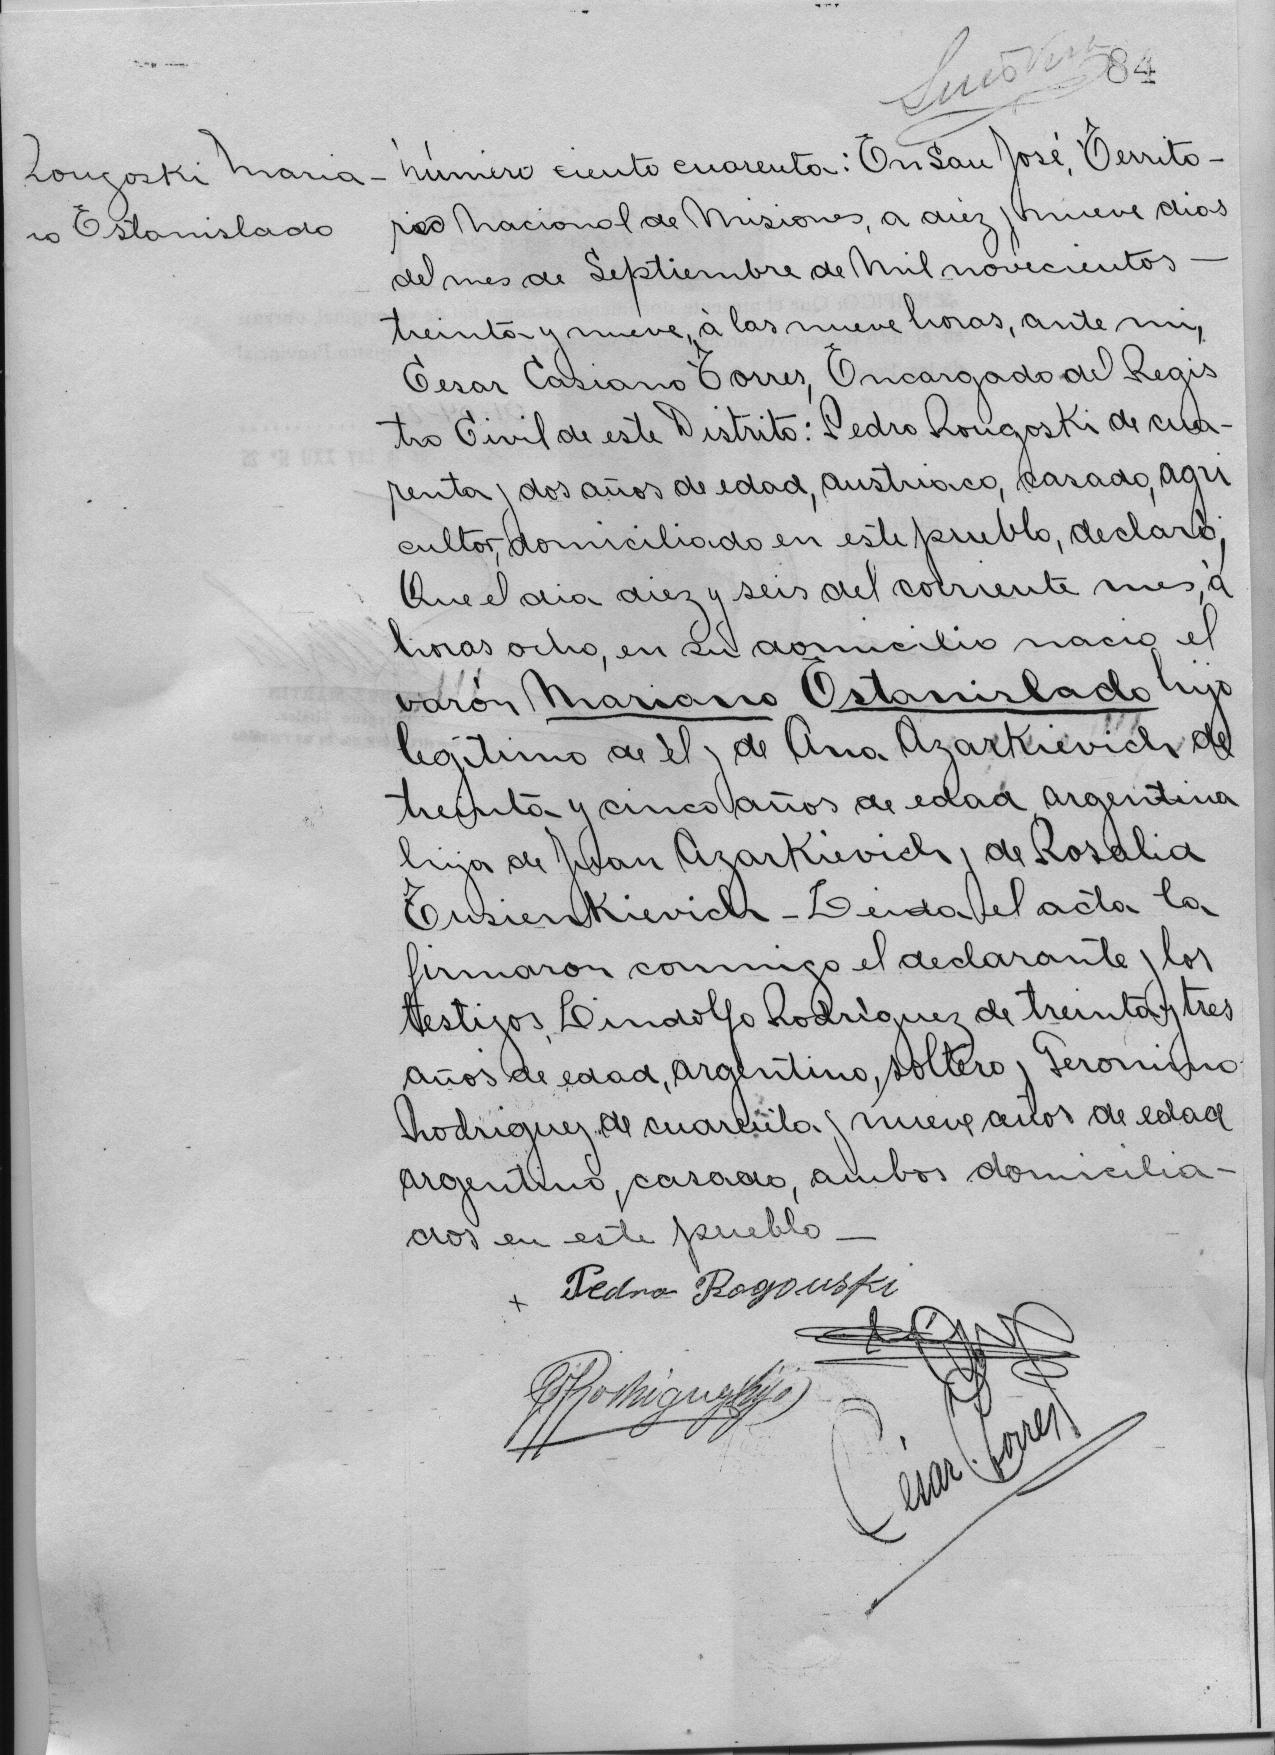 84
Rougoski Maria-
no Estanislado
Número ciento cuarenta: En San José, Territo-
rio Nacional de Misiones, a diez y nueve dias
del mes de Septiembre de Mil novecientos —
treinta y nueve, à las nueve horas, ante mi,
Cesar Casiano Torres, Encargado del Regis
tro Civil de este Distrito: Pedro Rougoski de cua-
renta y dos años de edad, austriaco, casado, agri
cultor, domiciliado en este pueblo, declaró,
Que el dia diez y seis del corriente mes, à
horas ocho, en su domicilio nació el
varón Mariano Estanislado hijo
legitimo de él y de Ana Azarkievich de
treinta y cinco años de edad argentina
hija de Juan Azarkievich y de Rosalia
Eusienkievich - Leida el acta la
firmaron conmigo el declarante y los
testigos, Lindolfo Rodriguez de treinta y tres
años de edad, argentino, soltero y Geronimo
Rodriguez de cuarenta y nueve años de edad
argentino, casado, ambos domicilia-
dos en este pueblo —
x Pedro Rogouski
Rodriguez (hijo)
César Torres